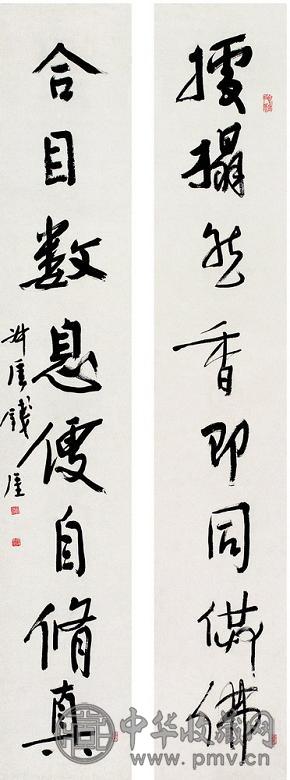 榻然香即同供佛
合目數息便自脩真
叔厓錢厓
中华收藏网
www.pmv.cn